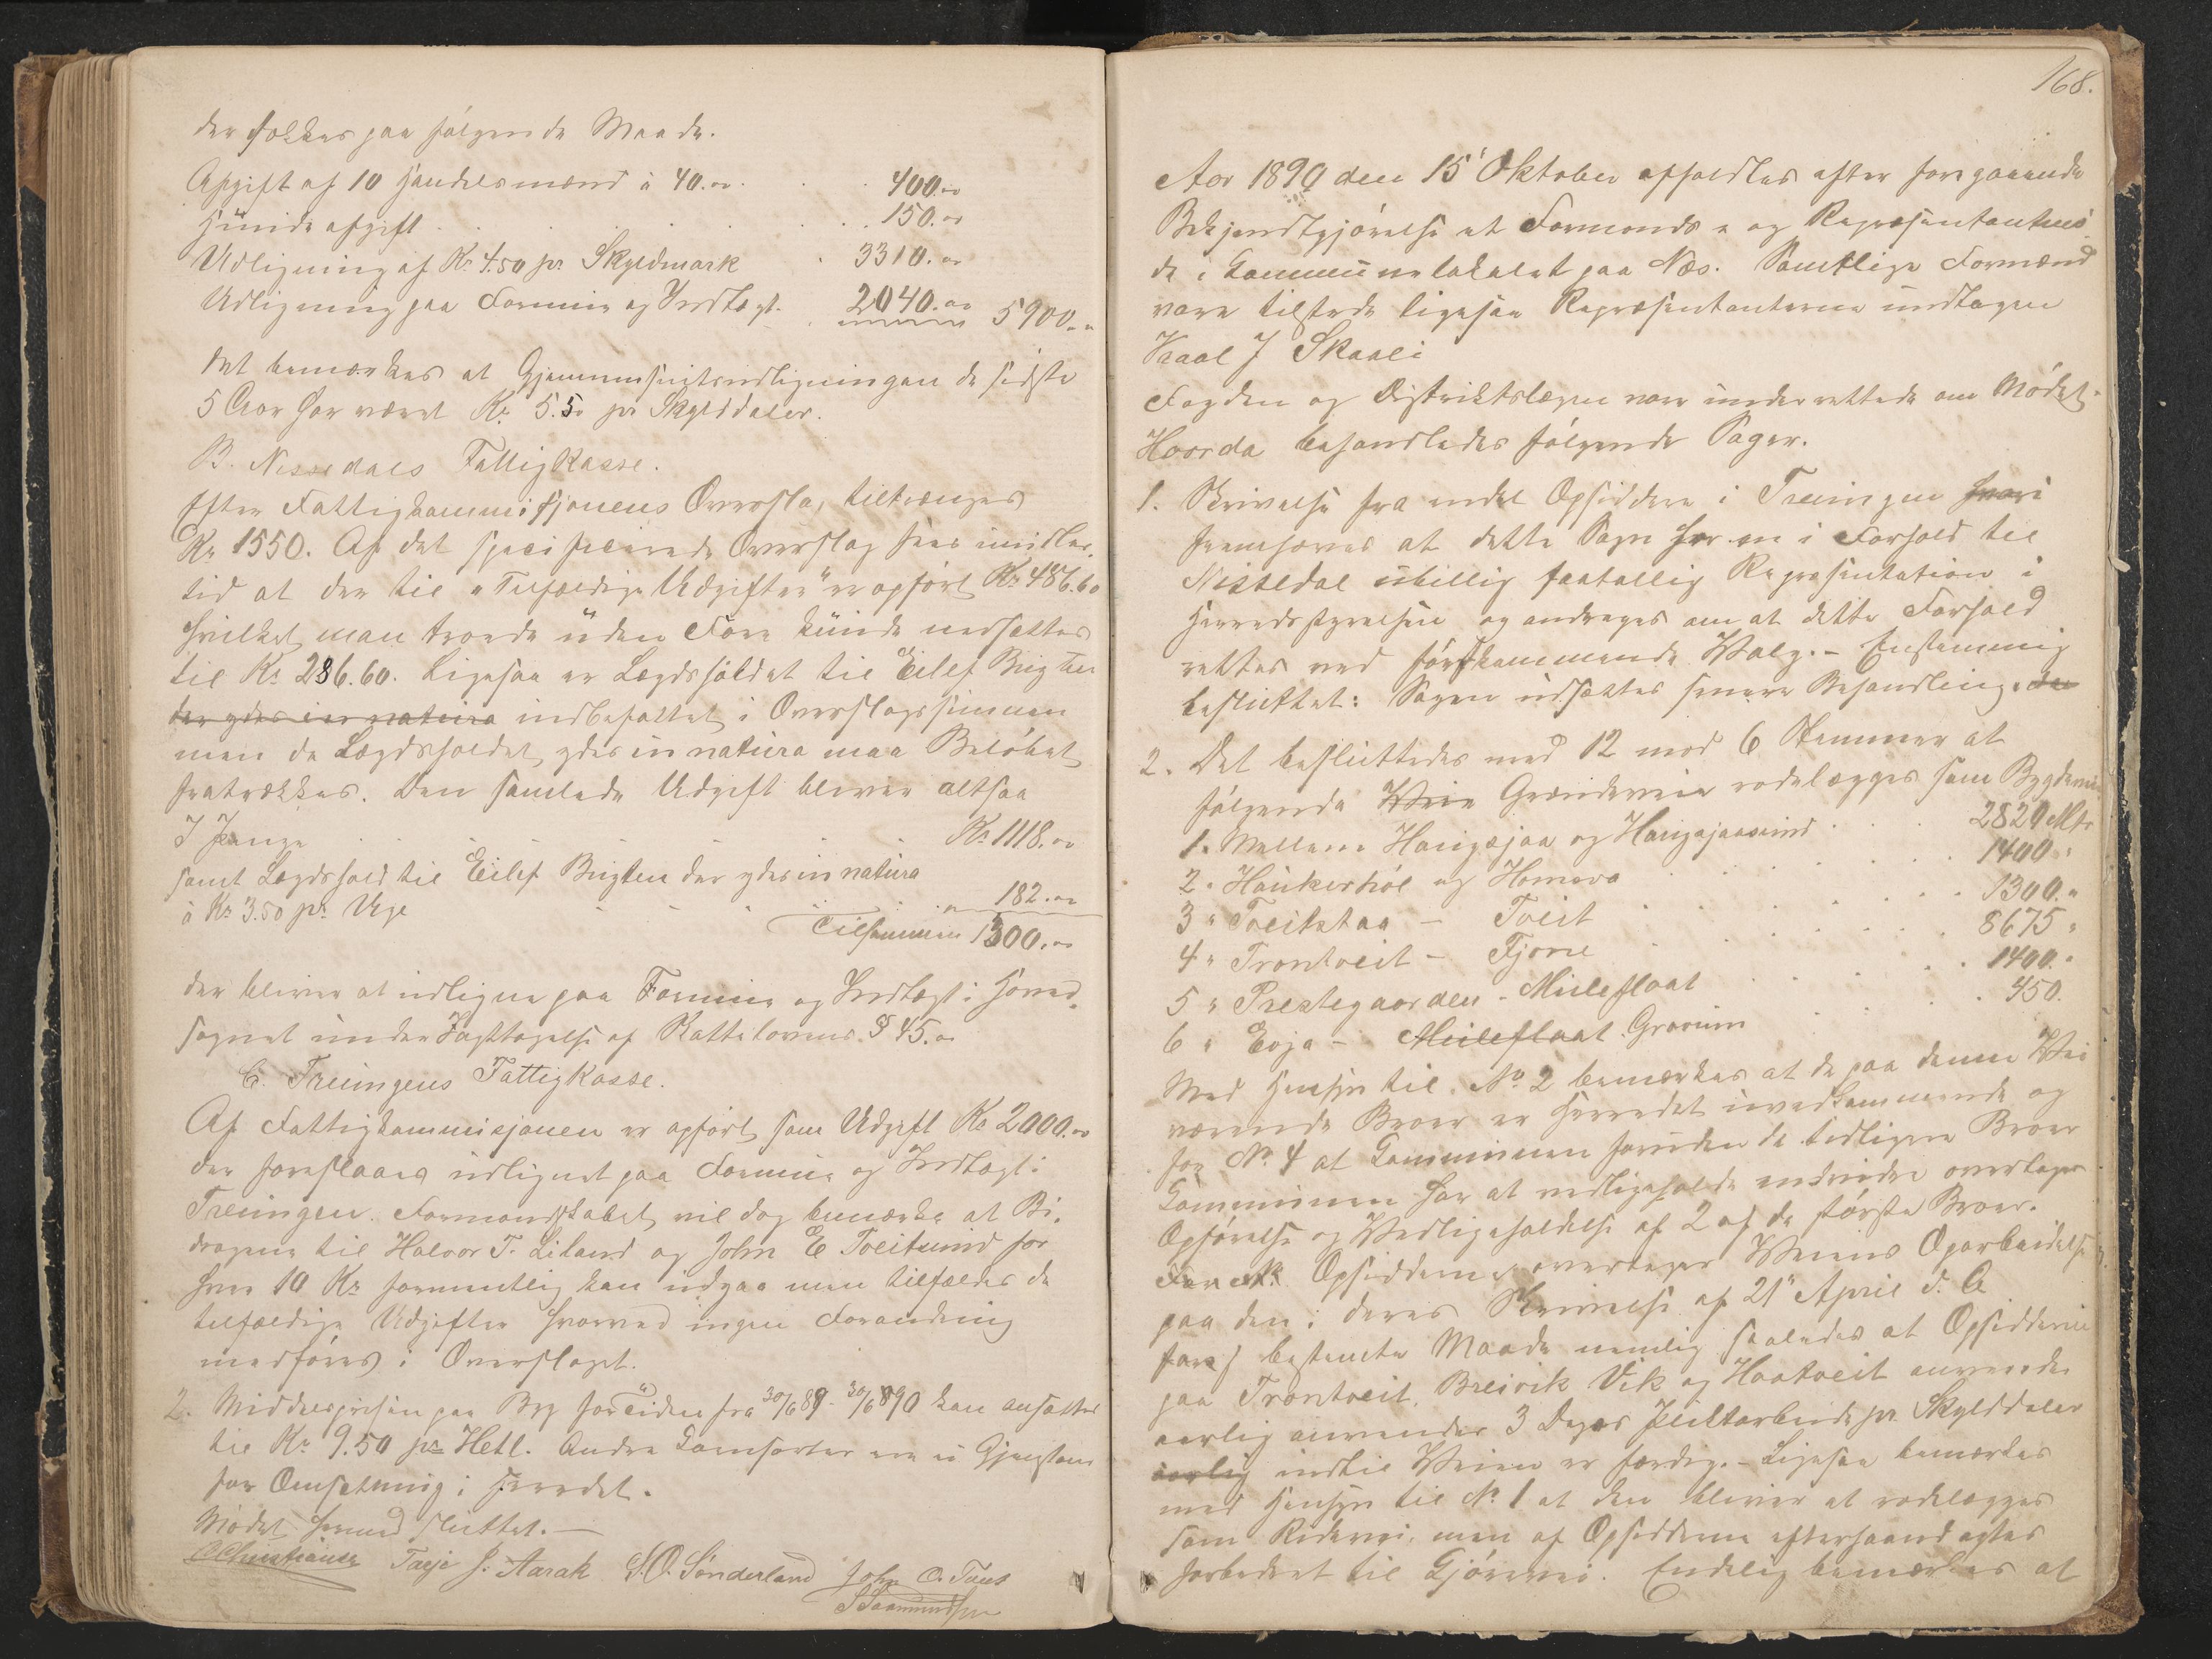 der søkkes paa følgende Maade.
Afgift af 10 Handelsmænd à 40.00 . . 400.00
Hundeafgift . . . . . 150.00
Udligning af Kr. 4.50 pr Skyldmark . 3310.00
Udligning paa Formue og Indtægt. . 2040.00 5900.00
Det bemærkes at Gjennemsnitsudligningen de sidste
5 Aar har været Kr. 5.50 pr Skylddaler.
B. Nissedals Fattigkasse.
Efter Fattigkommissjonens Overslag tiltrænges
Kr 1550. Af det specificerede Overslag sees imidler-
tid at der til "Tilfældige Udgifter" er opført Kr. 486.60
hvilket man troede uden Fare kunde nedsættes
til Kr. 286.60. Ligesaa er Lægdsholdet til Eilef Brigten
der ydes in natura indbefattet i Overslagssummen
men da Lægdsholdet ydes in natura maa Beløbet
fratrækkes. Den samlede Udgift bliver altsaa
I Penge . . . . . Kr. 1118.00
samt Lægdshold til Eilef Brigten der ydes in natura
à Kr 3.50 pr. Uge . . . . " 182.00
Tilsammen 1300.00
der bliver at udligne paa Formue og Indtægt i Hoved-
sognet under Iagttagelse af Skattelovens § 45.
C. Treungens Fattigkasse.
Af Fattigkommissjonen er opført som Udgift Kr 2000.00
der foreslaaes udlignet paa Formue og Indtægt i
Treungen. Formandskabet vil dog bemærke at Bi-
dragene til Halvor T. Liland og John E Tveitsund for
hver 10 Kr formentlig kan udgaa men tilfældes de
tilfældige Udgifter hvorved ingen Forandring
medføres i Overslaget.
2. Middelprisen paa Byg for Tiden fra 30/6 89 - 30/6 890 kan ansættes
til Kr. 9.50 pr Hetl. Andre Kornsorter ere ei Gjenstand
for Omsætning i Herredet.
Mødet hermed sluttet. —
C Christiansen Tarje J. Aarak S. O. Sønderland John O. Taus
S Saamundsen
168.
Aar 1890 den 15' Oktober afholdtes efter foregaaende
Bekjendtgjørelse et Formands- og Repræsentantmø-
de i Kommunelokalet paa Næs. Samtlige Formænd
vare tilstede ligesaa Repræsentanterne undtagen
Kaal J Skaali
Fogden og Distriktslægen vare underrettede om Mødet.
Hvorda behandledes følgende Sager.
1. Skrivelse fra endel Opsiddere i Treungen hvori
fremhæves at dette Sogn har en i Forhold til
Nissedal ubillig faatallig Repræsentation i
Herredsstyrelsen og andrages om at dette Forhold
rettes ved førstkommende Valg. - Enstemmig
besluttet: Sagen udsættes senere Behandling. der
2. Det besluttedes med 12 mod 6 Stemmer at
følgende Veie Grændeveie rodelægges som Bygdevei
1. Mellem Haugsjaa og Haugsjaasund . . . 2820 Mtr
2. Haukerhól og Homvo . . . 1400 "
3 " Tveitstaa - Tveit . . . 1300 "
4 " Trontveit - Fjone . . . 8675 "
5 " Prestegaarden - Mulefloat . . . 1400 "
6 " Eoja - Mulefloat Grovum . . . 450.
Med Hensyn til No. 2 bemærkes at de paa denne Vei
værende Broer er Herredet uvedkommende og
for No. 4 at Kommunen foruden de tidligere Broer
Kommunen har at vedligeholde endvidere overtager
Opførelse og Vedligeholdelse af 2 af de største Broer.
Opsidderne overtager Veiens Oparbeidelse
paa den i deres Skrivelse af 21' April d. A
bestemte Maade nemlig saaledes at Opsidderne
paa Trontveit, Breivik Vik og Haatveit anvender
aarlig anvender 3 Dages Pliktarbeide pr. Skylddaler
aarlig indtil Veien er færdig. - Ligesaa bemærkes
med Hensyn til No. 1 at den bliver at rodelægges
som Ridevei, men af Opsidderne efterhaand agtes
forbedret til Kjørevei. Endelig bemærkes at